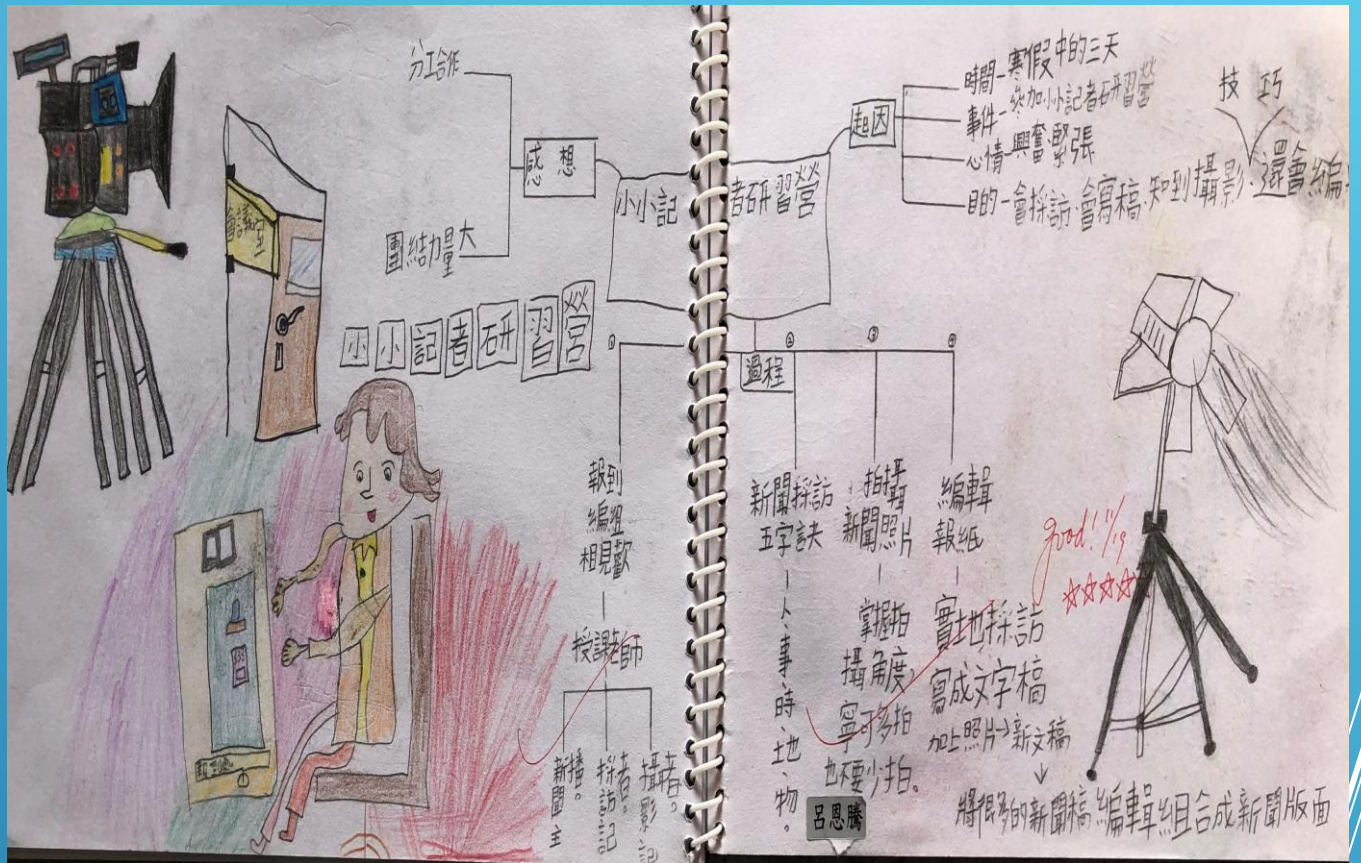 分工合作
感想
團結力量大
小小記者研習營
起因
時間-寒假中的三天
事件-參加小小記者研習營
心情-興奮.緊張
目的-會採訪.會寫稿.知到攝影、還會編
技巧
會議室
小小記者研習營
過程
①
報到
編組
相見歡
授課老師
新聞主播。
採訪記者。
攝影記者。
②
新聞採訪
五字訣
人、事、時、地、物。
③
拍攝
新聞照片
掌握拍
攝角度,
寧可多拍
也不要少拍。
④
編輯
報紙
實地採訪
寫成文字稿
加上照片→新文稿
將很多的新聞稿編輯組合成新聞版面
good! 11/19
呂恩騰